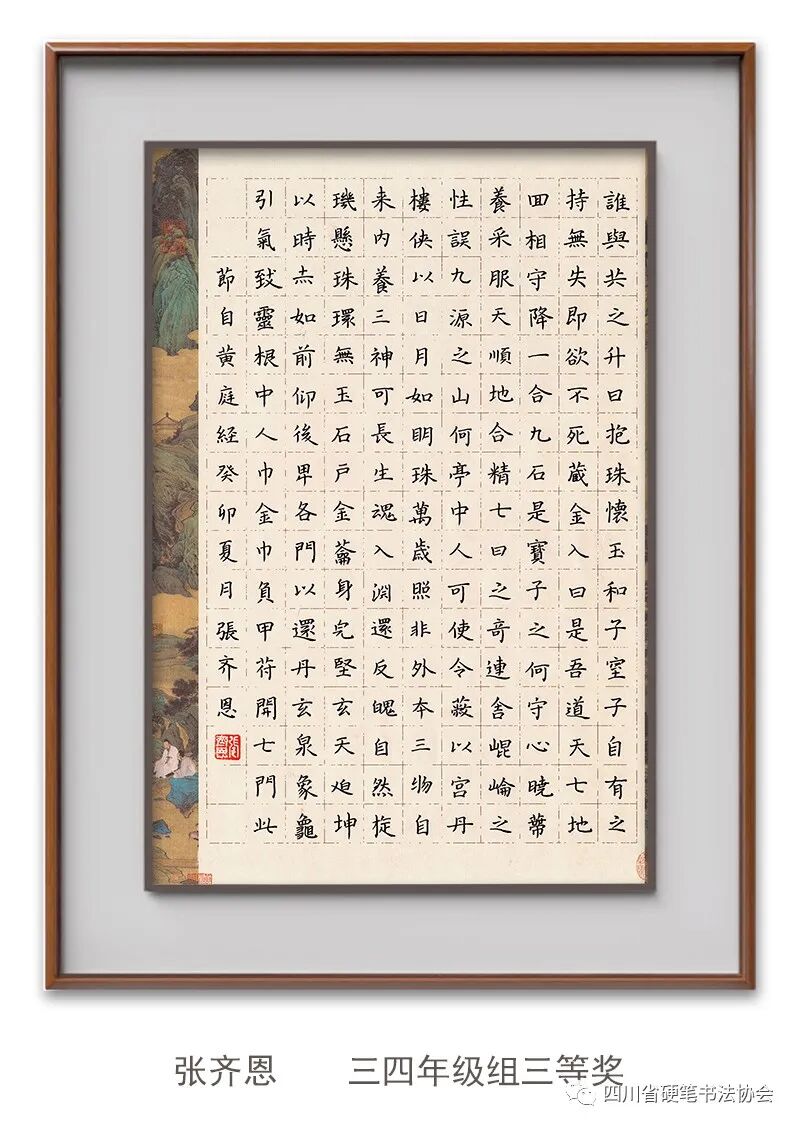 誰與共之升日抱珠懷玉和子室子自有之
持無失即欲不死藏金入日是吾道天七地
回相守降一合九石是寶子之何守心曉蒂
養采服天順地合精七日之奇連舍崐崘之
性誤九源之山何亭中人可使令蔽以宮丹
樓俠以日月如明珠萬歲照非外本三物自
来内養三神可長生魂入淵還反魄自然旋
璣懸珠環無玉石戶金籥身完堅玄天迫坤
以時如前仰後卑各門以還丹玄泉象龜
引氣致靈根中人巾金巾負甲苻開七門此
節自黄庭經癸卯夏月張齐恩
张齐恩
三四年级组三等奖
四川省硬笔书法协会